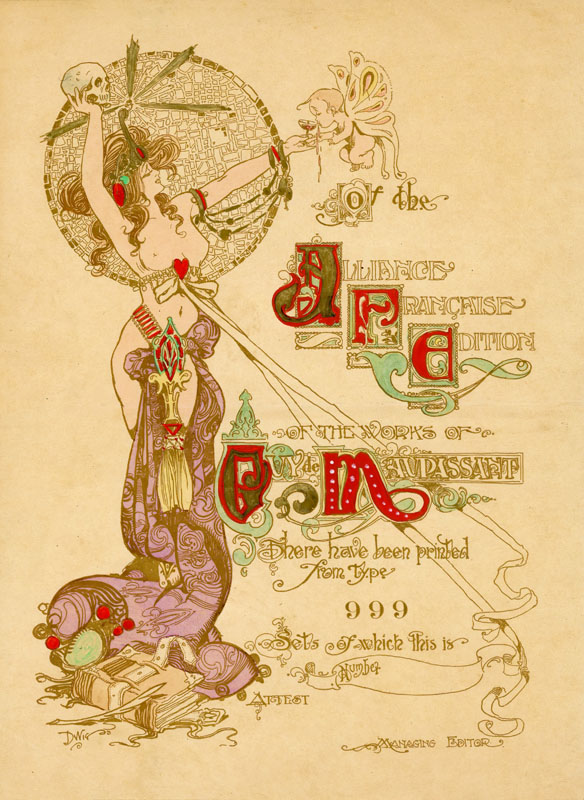 Of the
ALLIANCE
FRANÇAISE
EDITION
OF THE WORKS OF
GUY de MAUPASSANT
There have been printed
from type
999
Sets of which this is
Number
ATTEST
MANAGING EDITOR